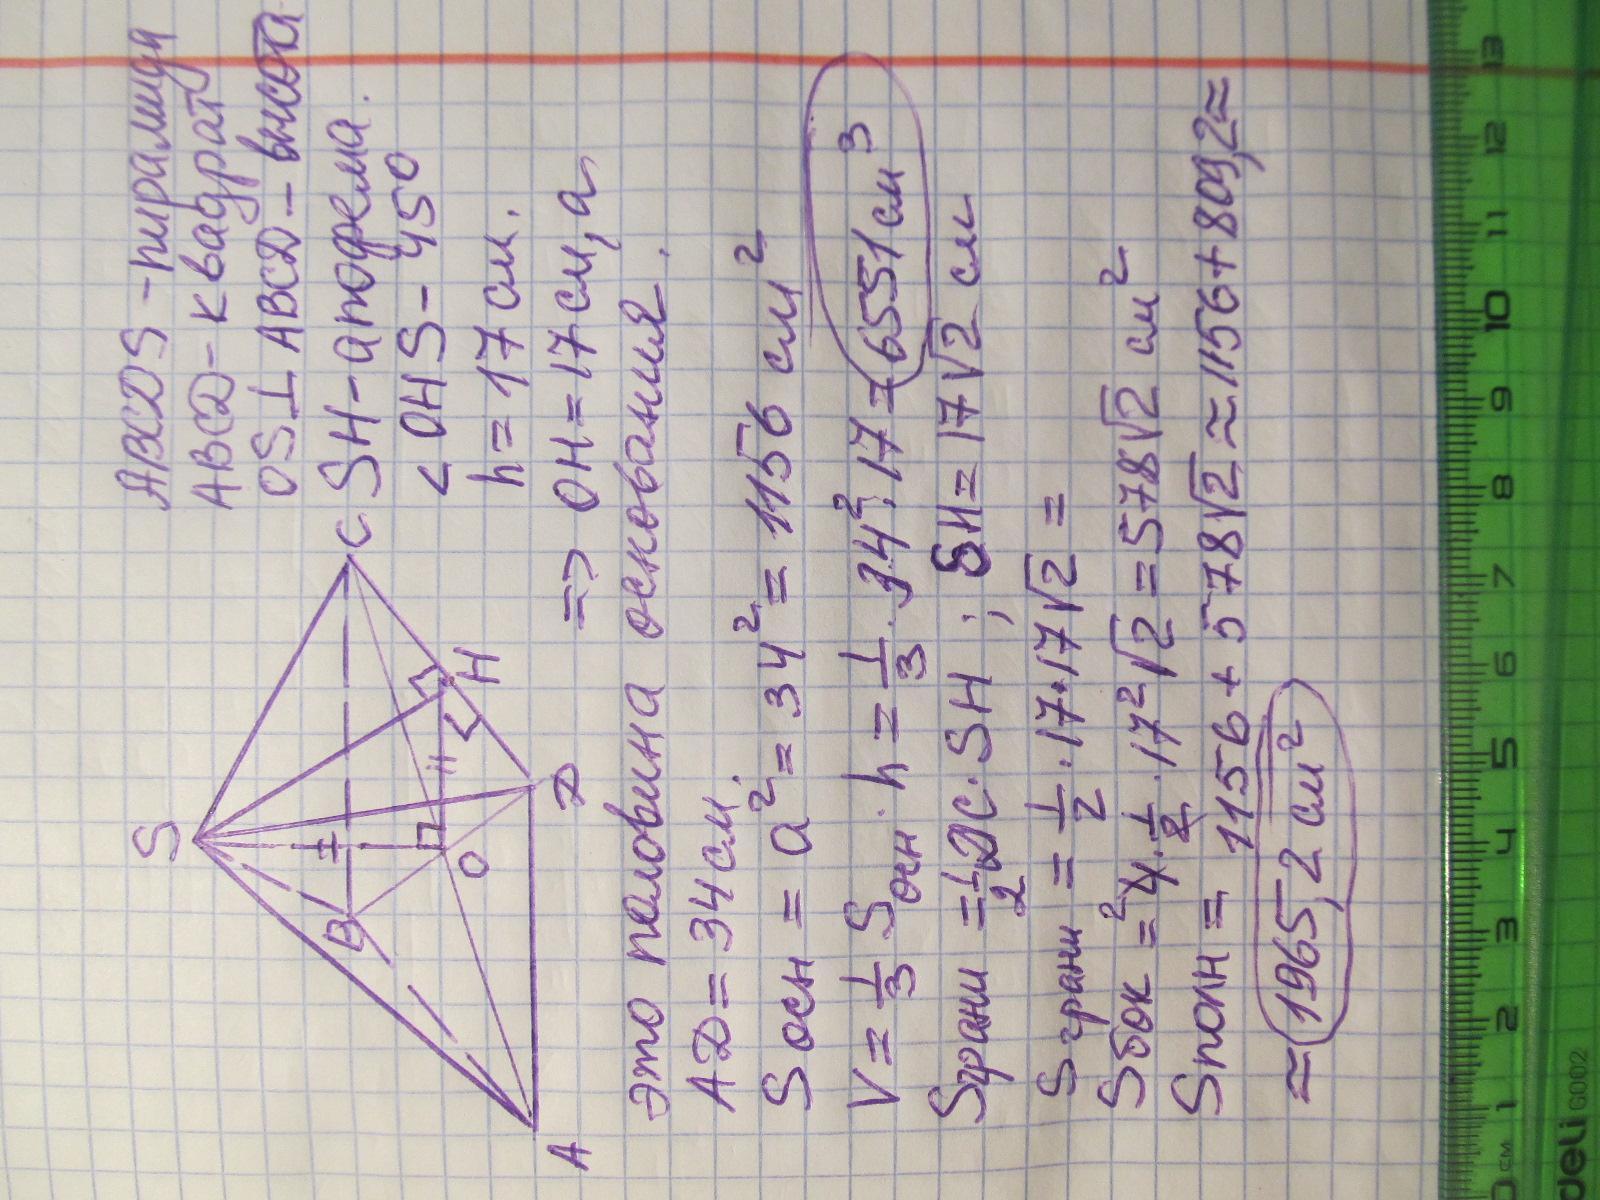 ABCDS - пирамида
ABCD - квадрат
OS ⊥ ABCD - высота
SH - апофема.
< OHS - 45°
h = 17 см.
=> OH = 17 см, а
это половина основания.
AD = 34 см.
S осн = a² = 34² = 1156 см²
V = 1/3 S осн · h = 1/3 · 34² · 17 = 6551 см³
S грани = 1/2 DC · SH ; SH = 17√2 см
S грани = 1/2 · 17 · 17√2 =
S бок = 4 · 1/2 · 17² √2 = 578√2 см²
S полн = 1156 + 578√2 ≈ 1156 + 809,2 ≈
≈ 1965,2 см²
S
B
C
H
O
D
A
0 см 1 2 3 4 5 6 7 8 9 10 11 12 13
deli G002